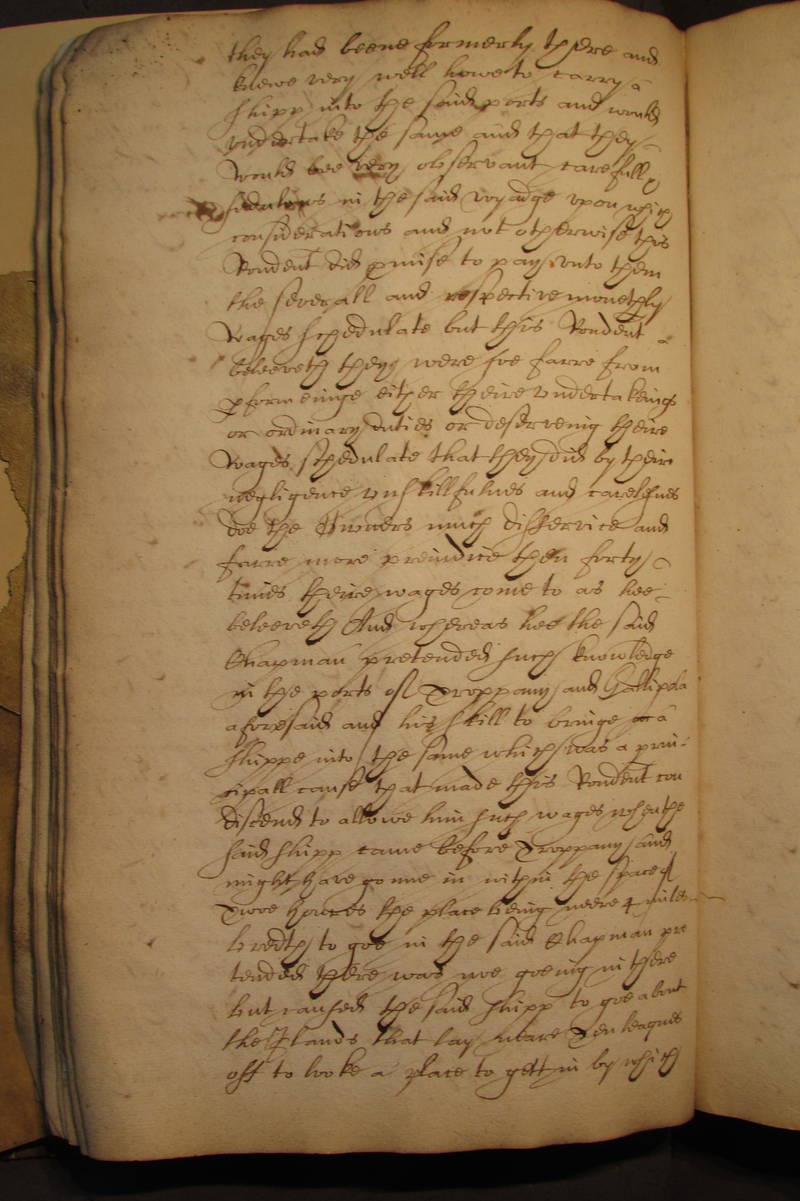 they had beene formerly there and
knewe very well howe to carry a
shipp into the said ports and would
vndertake the same and that they
would bee very observant carefull
sedulous in the said voyadge vpon which
considerations and not otherwise this
Rondent did pmise to pay vnto them
the severall and respective monethly
wages schedulate but this Rondent
beleeveth they were soe farre from
pformeinge either theire vndertakeings
or ordinary duties or deserveing theire
wages schedulate that they did by their
negligence vnskillfulnes and careleslnes
doe the Owners much disservice and
farre more preiudice then forty
times theire wages come to as hee
beleeveth And whereas hee the said
Chapman pretended such knowledge
in the ports of Troppany and Gallipola
aforesaid and his skill to bringe a
shippe into the same which was a prin-
cipall cause that made this Rondent con
discend to allowe him such wages when the
said shipp came before Troppany and
might have gonne in within the space of
Twoe howres the place being neere 4 miles
bredth to goe in the said Chapman pre
tended there was noe goeing in there
but caused the said shipp to goe about
the Islands that lay neare Ten leagues
off to looke a place to gett in by which